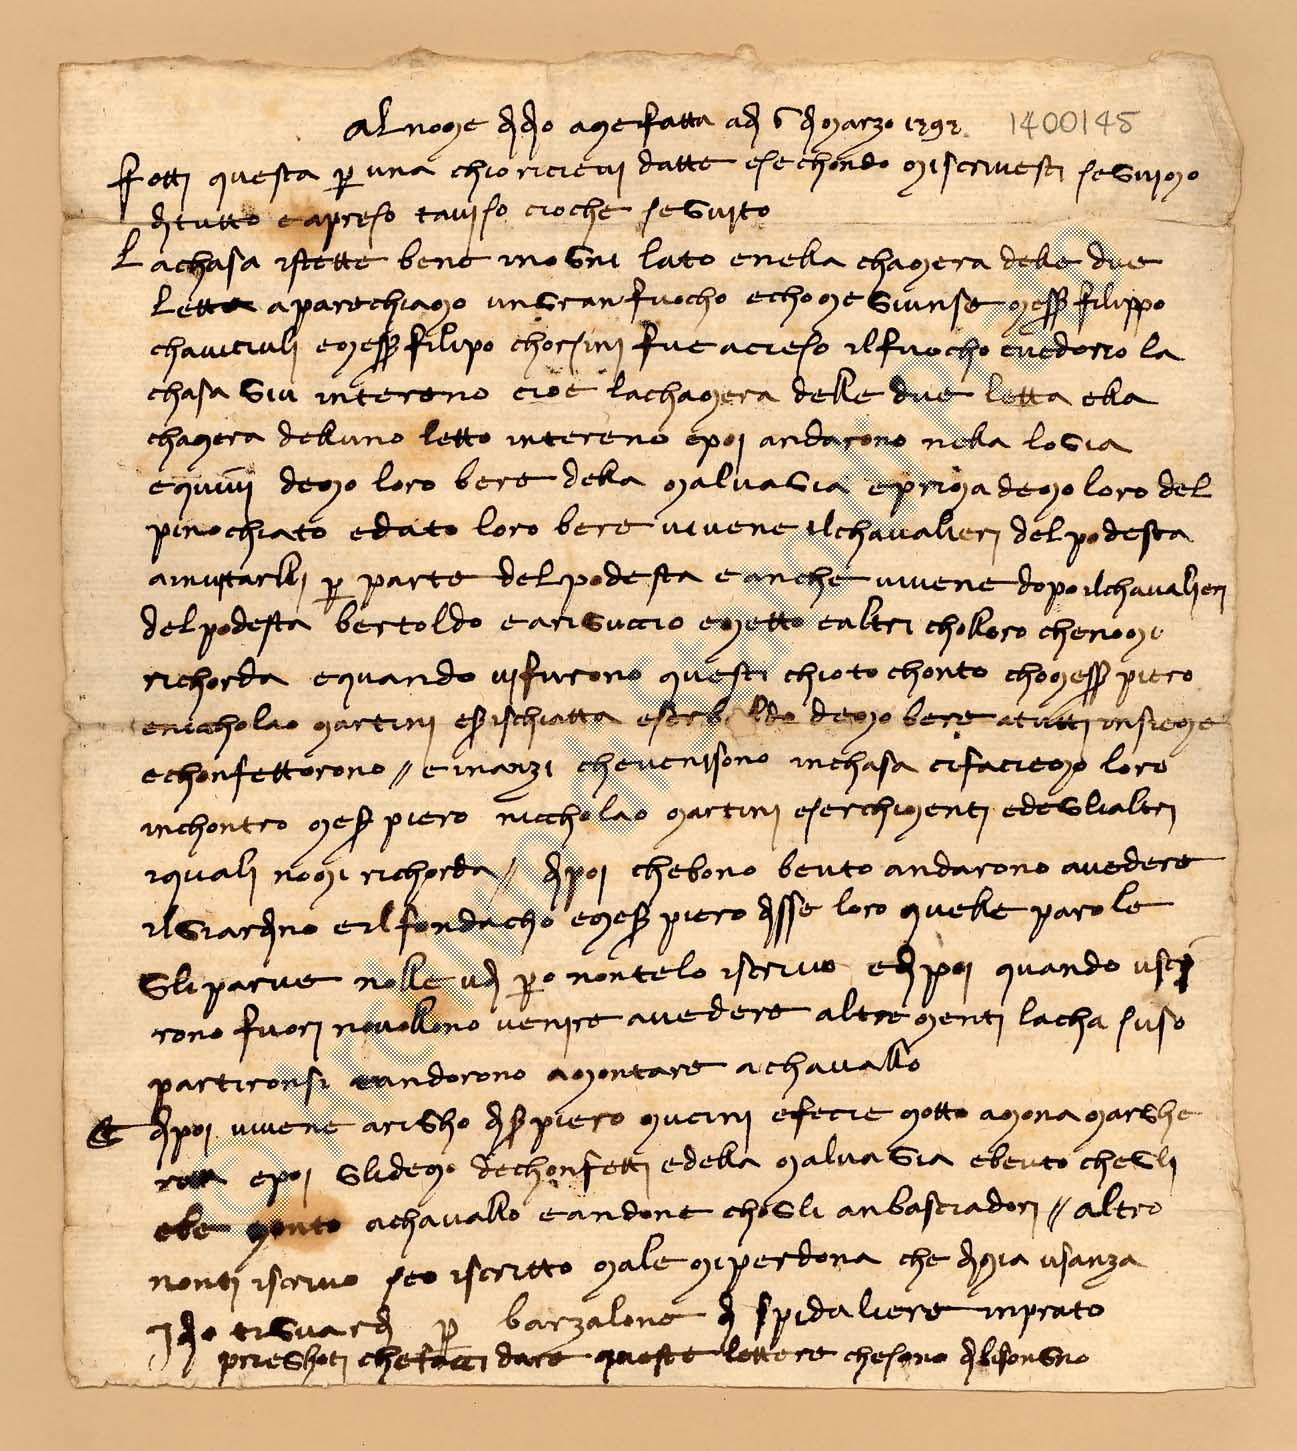 Al nome di dio ame fatta adi 6 di marzo 1392 1400145
Fotti questa per una chio ricievi da tte e sechondo mi scrivesti seguimo
di tutto e apreso taviso cio che seguito
La chasa istette bene in ogni lato e nella chamera delle due
letta aparechiamo un gran fuocho e chome giunse mess filippo
chaviciuli e mess filipo chorsini fue acieso il fuocho e vedorro la
chasa giu in tereno cioe la chamera delle due letta e lla
chamera dell uno letto in tereno e poi andarono nella logia
e quivi demo loro bere della malvagia e prima demo loro del
pinochiato e dato loro bere vi vene il chavalieri del podesta
a invitarlli per parte del podesta e anche vi vene dopo il chavalieri
del podesta bertoldo e ariguccio e metto e altri cholloro che no mi
richorda e quando vi furono questi chi o to chonto cho mess piero
e niccholao martini e s ischiatta e ser baldo demo bere a tutti insieme
e chonfettorono // e inanzi che venisono in chasa ci faciemo loro
inchontro mes piero niccholao martini e ser chimenti e degli altri
i quali no mi richorda // di poi che bono beuto andarono a vedere
il giardino e il fondacho e mes piero disse loro quelle parole
gli parve no lle udi pero non telo iscrivo e di poi quando usci
rono fuori no vollono venire a vedere altre menti la cha suso
partironsi e andorono a montare a chavallo
E di poi vi vene arigho di s piero mucini e fecie motto a mona marghe
rita e poi gli demo de chonfetti e della malvagia e beuto che gli
ebe monto a chavallo e andone chogli anbasciadori // altro
non ti iscrivo se o iscritto male mi perdona che di mia usanza
Idio ti guardi per barzalone di spidaliere in prato
prieghoti che facci dare queste lettere che sono di bisongno